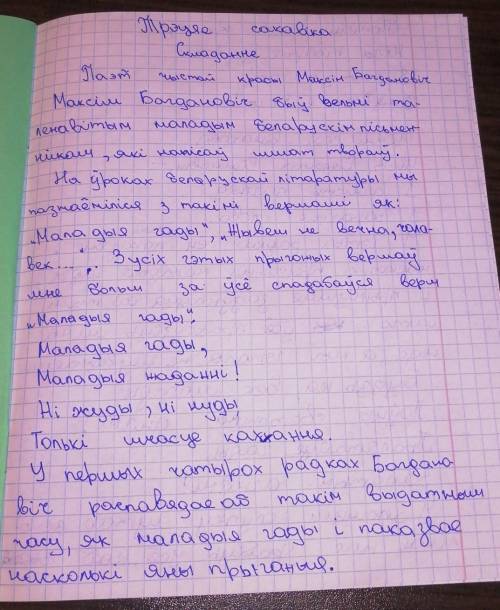 Трэцяе сакавіка
Складанне
Паэт чыстай красы Максін Багдановіч
Максім Богдановіч быў вельмі та-
ленавітым маладым беларускін пісьмен-
нікам, які напісаў шмат твораў.
На ўроках беларускай літаратуры мы
пазнаёміліся з такімі вершамі як:
„Маладыя гады", „Жывеш не вечна, чала-
век...". З усіх гэтых прыгожых вершаў
мне больш за ўсё спадабаўся верш
„Маладыя гады".
Маладыя гады,
Маладыя жаданні!
Ні жуды, ні нуды,
Толькі шчасце кахання.
У першых чатырох радках Багдано-
віч распавядае аб такім выдатным
часу, як маладыя гады і паказвае
наколькі яны прыгожыя.